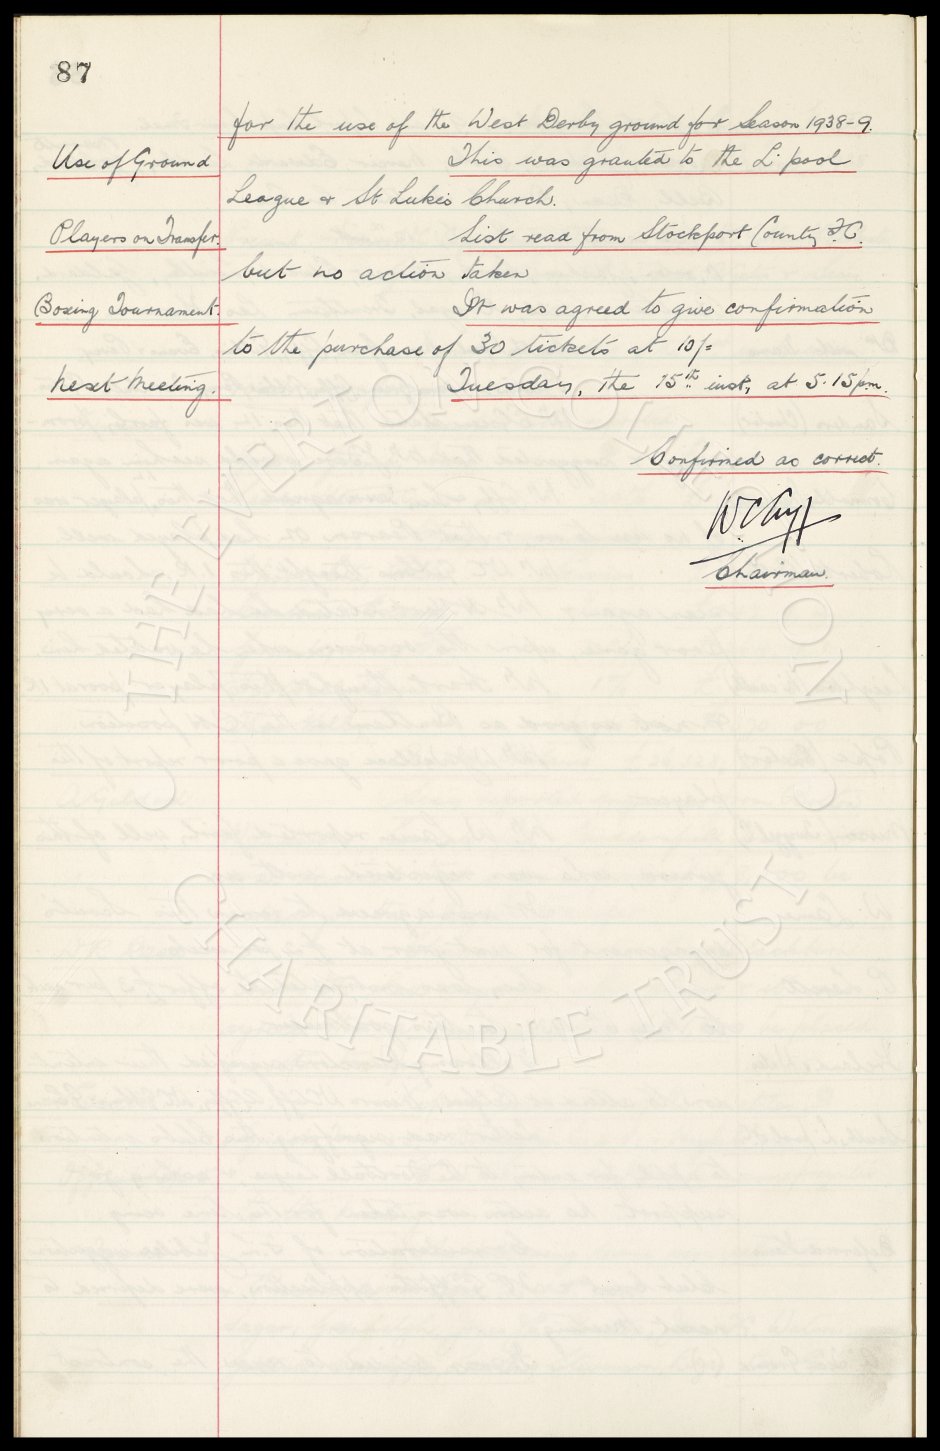 87
for the use of the West Derby ground for Season 1938-9.
Use of Ground This was granted to the L'pool
League & St Luke's Church.
Players on Transfer. List read from Stockport County F.C.
but no action taken
Boxing Tournament. It was agreed to give confirmation
to the purchase of 30 tickets at 10/=
Next Meeting. Tuesday, the 15th inst, at 5.15 p.m.
Confirmed as correct.
W.C. Cuff
Chairman.
THE EVERTON COLLECTION
CHARITABLE TRUST